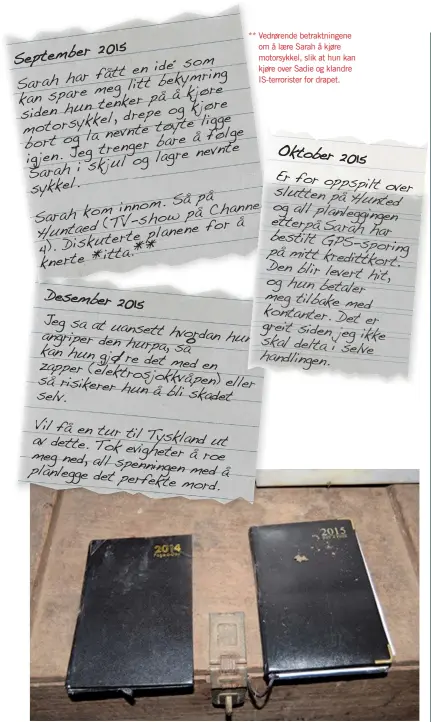 September 2015
Sarah har fått en idé som
kan spare meg litt bekymring
siden hun tenker på å kjøre
motorsykkel, drepe og kjøre
bort og la nevnte tøyte ligge
igjen. Jeg trenger bare å følge
Sarah i skjul og lagre nevnte
sykkel.
Sarah kom innom. Så på
Huntaed (TV-show på Channe
4). Diskuterte planene for å
knerte *itta.**
** Vedrørende betraktningene
om å lære Sarah å kjøre
motorsykkel, slik at hun kan
kjøre over Sadie og klandre
IS-terrorister for drapet.
Oktober 2015
Er for oppspilt over
slutten på Hunted
og all planleggingen
etterpå Sarah har
bestilt GPS-sporing
på mitt kredittkort.
Den blir levert hit,
og hun betaler
meg tilbake med
kontanter. Det er
greit siden jeg ikke
skal delta i selve
handlingen.
Desember 2015
Jeg sa at uansett hvordan hun
angriper den hurpa, så
kan hun gjøre det med en
zapper (elektrosjokkvåpen) eller
så risikerer hun å bli skadet
selv.
Vil få en tur til Tyskland ut
av dette. Tok evigheter å roe
meg ned, all spenningen med å
planlegge det perfekte mord.
2014
2015